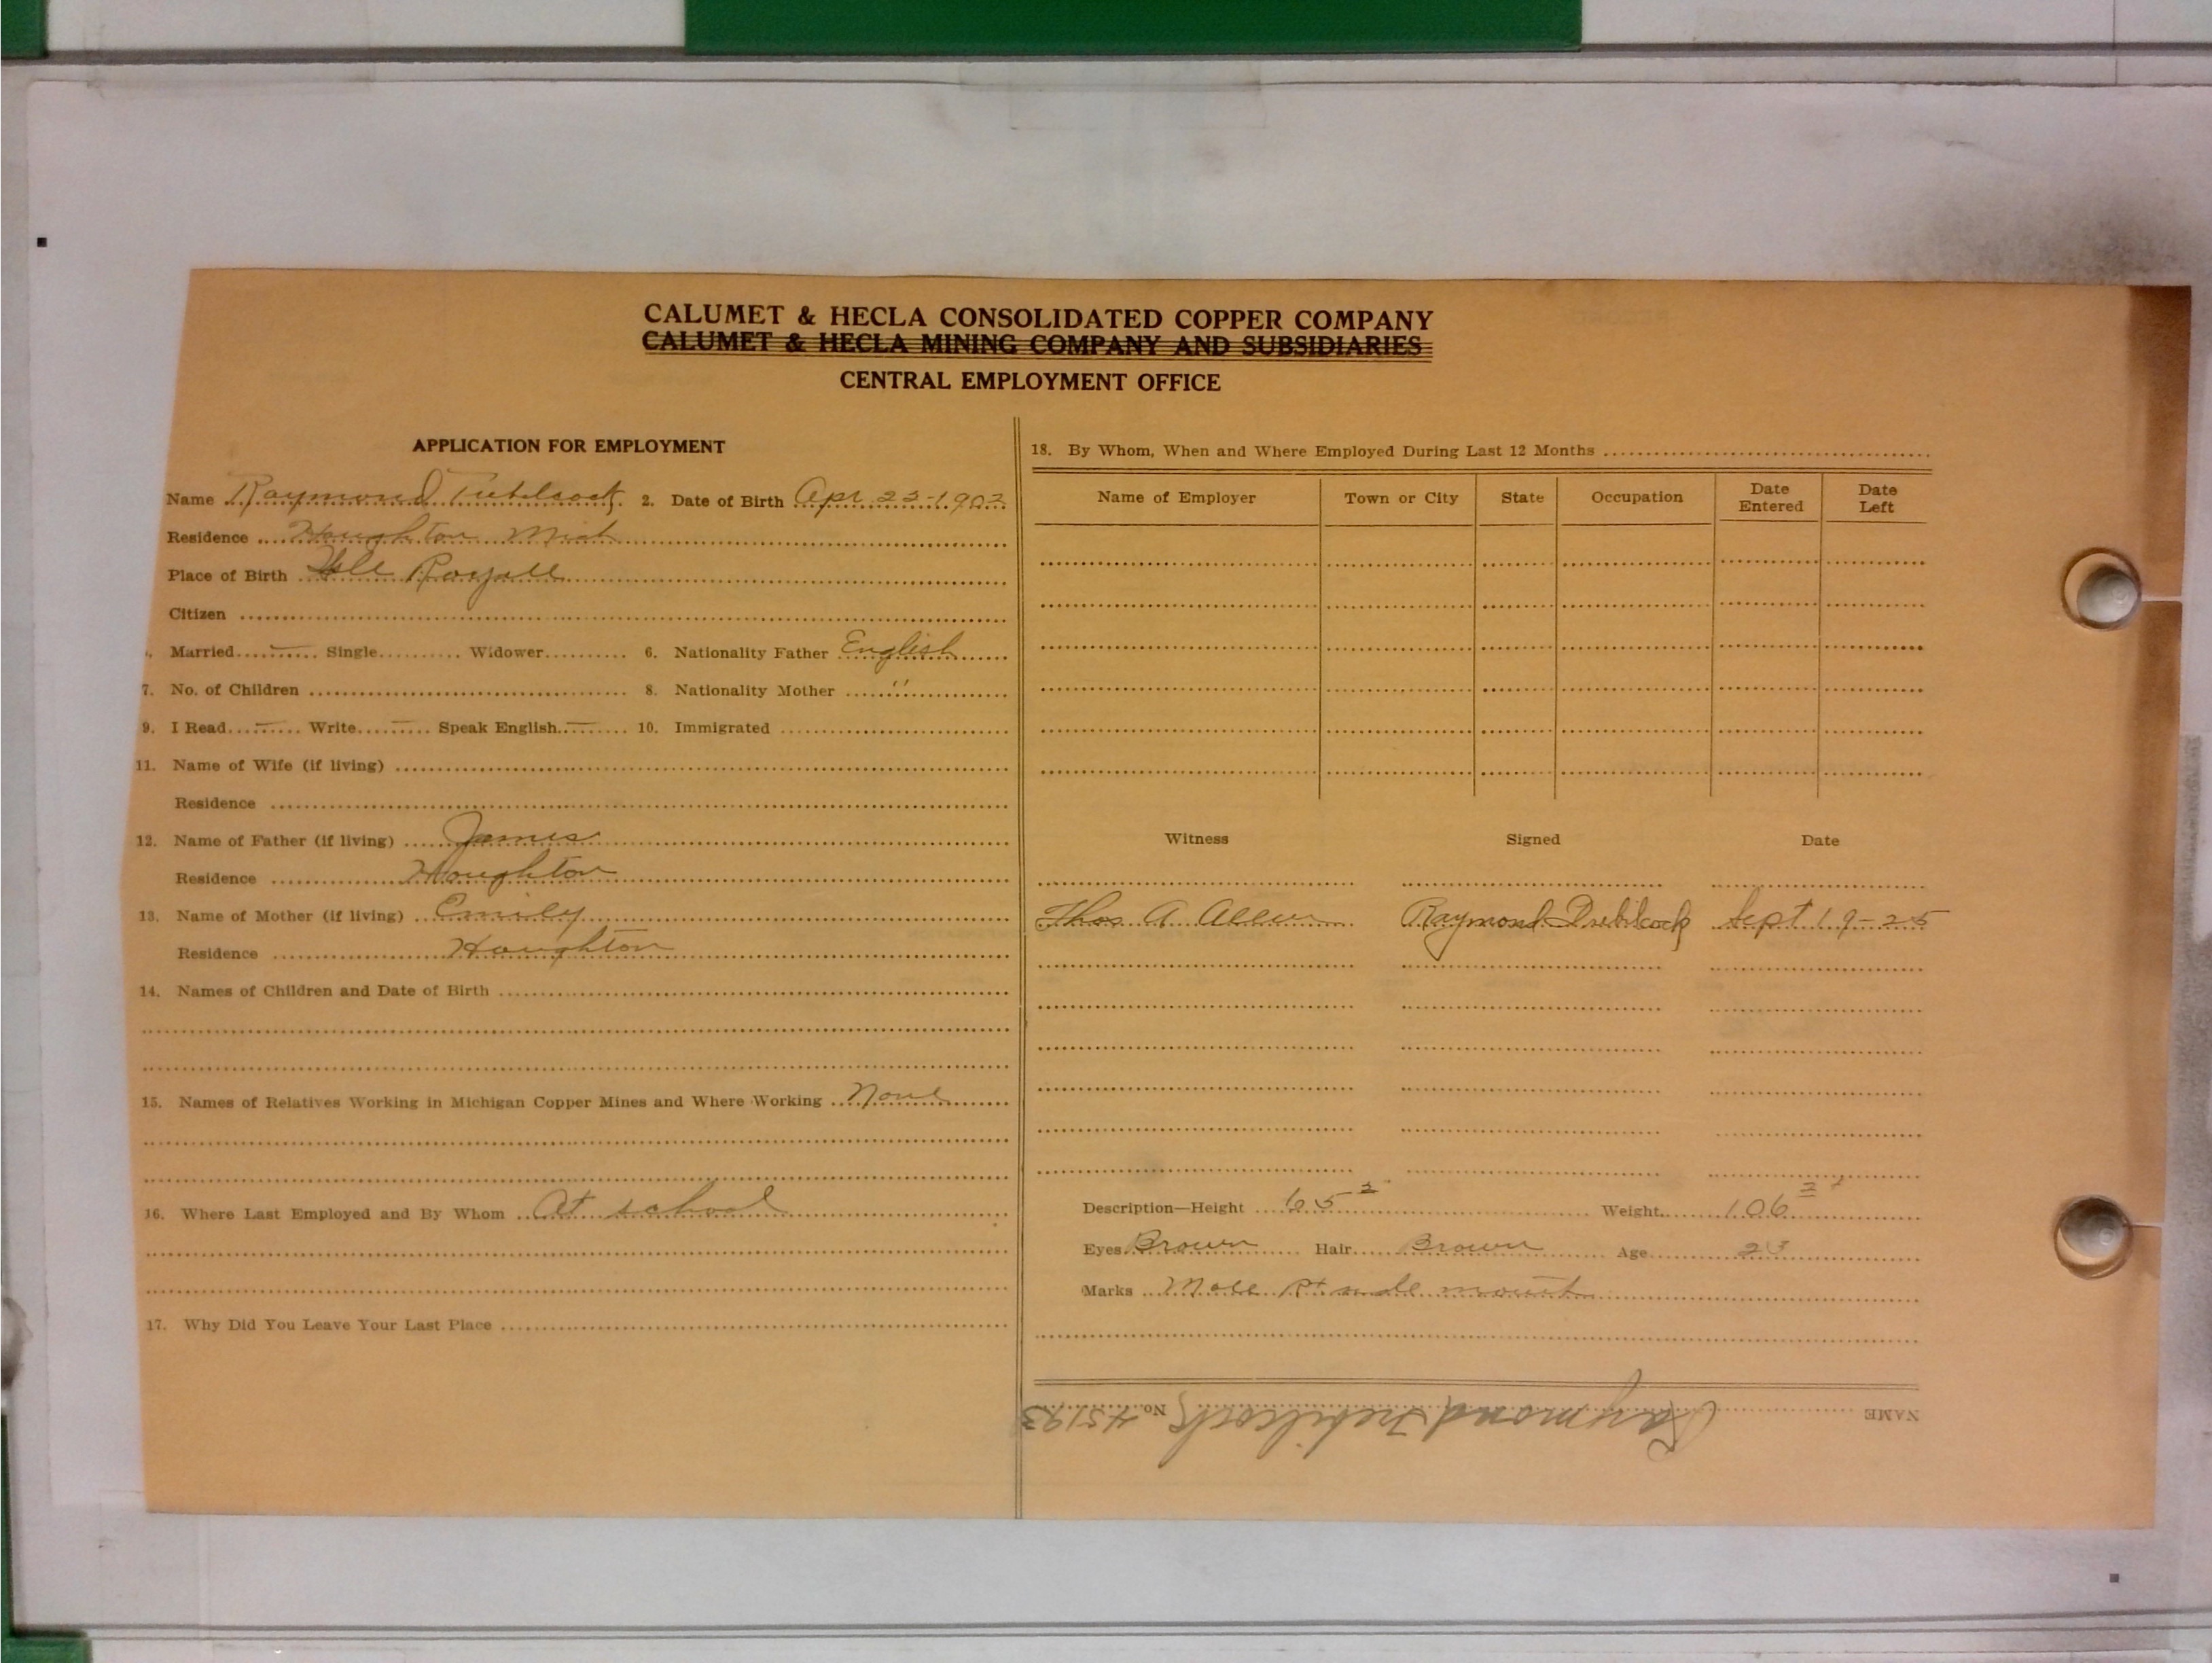 CALUMET & HECLA CONSOLIDATED COPPER COMPANY
CALUMET & HECLA MINING COMPANY AND SUBSIDIARIES
CENTRAL EMPLOYMENT OFFICE
APPLICATION FOR EMPLOYMENT
Name Raymond Trebilcock 2. Date of Birth Apr 22-1902
Residence Houghton Mich
Place of Birth Isle Royale
Citizen
Married — Single Widower 6. Nationality Father English
7. No. of Children 8. Nationality Mother "
9. I Read — Write — Speak English — 10. Immigrated
11. Name of Wife (if living)
Residence
12. Name of Father (if living) James
Residence Houghton
13. Name of Mother (if living) Emily
Residence Houghton
14. Names of Children and Date of Birth
15. Names of Relatives Working in Michigan Copper Mines and Where Working None
16. Where Last Employed and By Whom At school
17. Why Did You Leave Your Last Place
18. By Whom, When and Where Employed During Last 12 Months
Name of Employer Town or City State Occupation Date Entered Date Left
Witness Signed Date
Thos A Allen Raymond Trebilcock Sept 19-25
Description—Height 65 2 Weight 106 2
Eyes Brown Hair Brown Age 23
Marks Mole Rt side mouth
NAME Raymond Trebilcock No. 45193